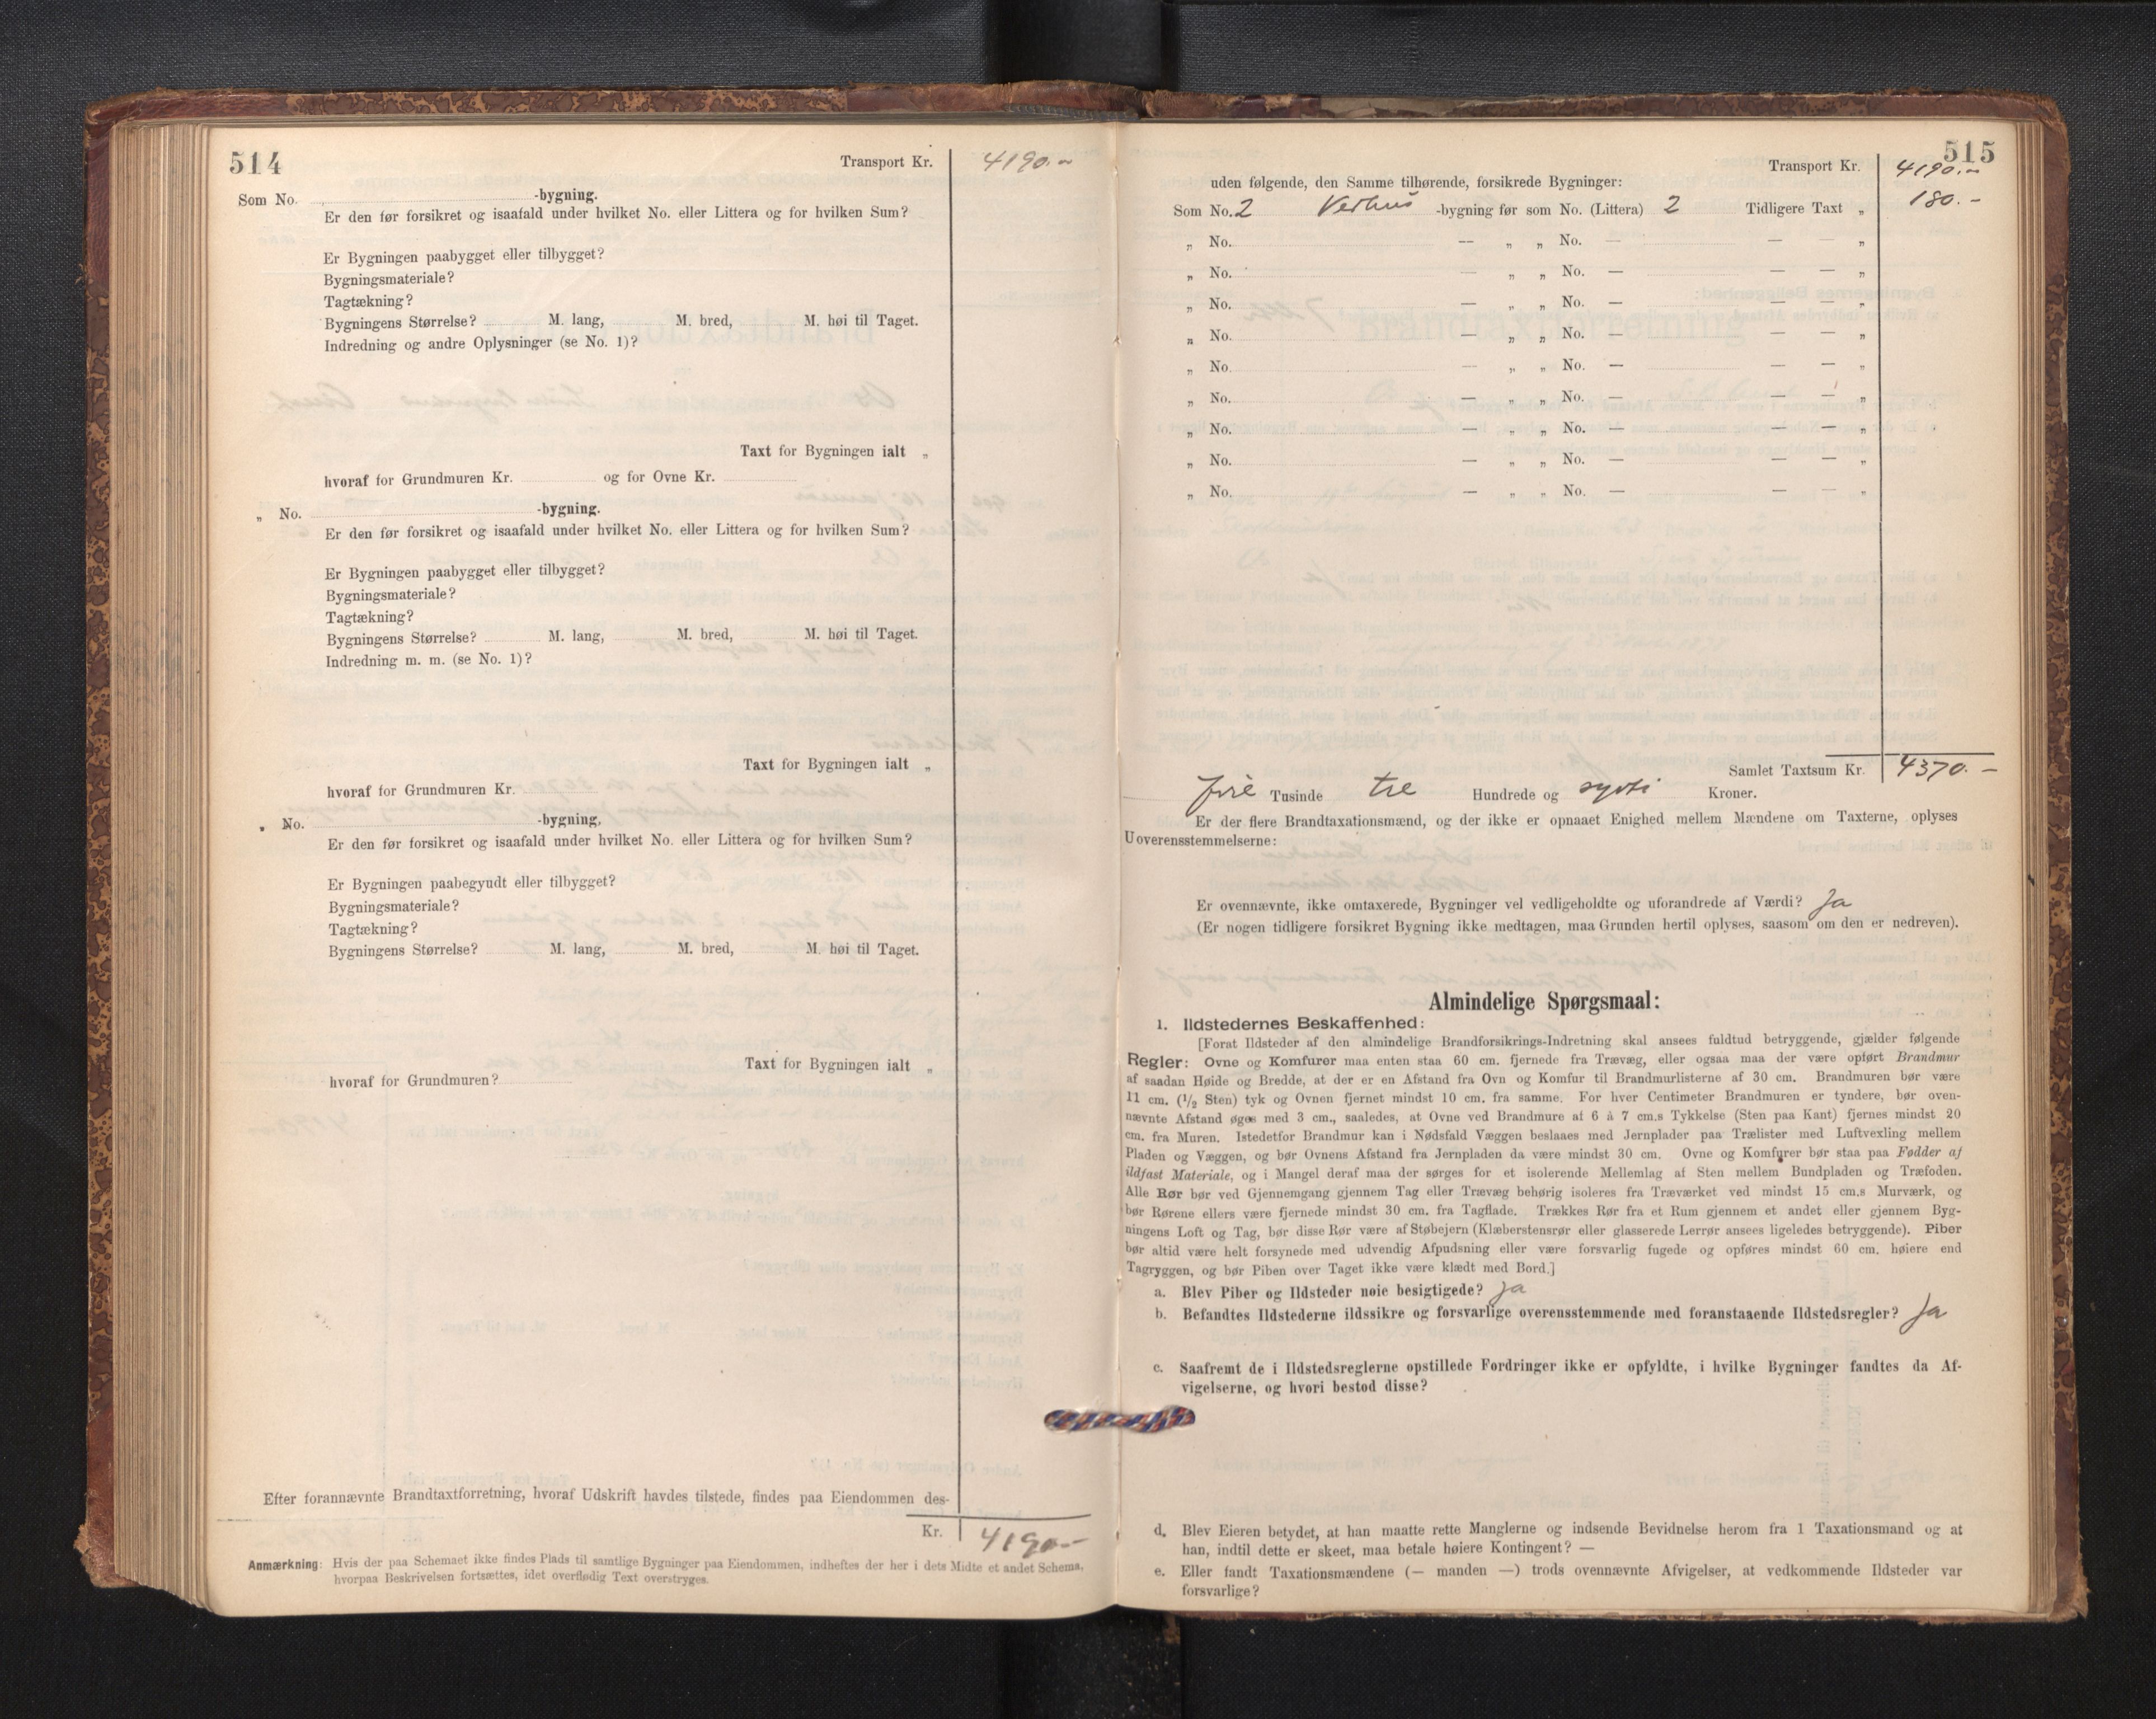 514
Transport Kr. 4190.-
Som No. -bygning.
Er den før forsikret og isaafald under hvilket No. eller Littera og for hvilken Sum?
Er Bygningen paabygget eller tilbygget?
Bygningsmateriale?
Tagtækning?
Bygningens Størrelse? M. lang, M. bred, M. høi til Taget.
Indredning og andre Oplysninger (se No. 1)?
Taxt for Bygningen ialt „
hvoraf for Grundmuren Kr. og for Ovne Kr.
„ No. -bygning.
Er den før forsikret og isaafald under hvilket No. eller Littera og for hvilken Sum?
Er Bygningen paabygget eller tilbygget?
Bygningsmateriale?
Tagtækning?
Bygningens Størrelse? M. lang, M. bred, M. høi til Taget.
Indredning m. m. (se No. 1)?
Taxt for Bygningen ialt „
hvoraf for Grundmuren Kr.
„ No. -bygning,
Er den før forsikret og isaafald under hvilket No. eller Littera og for hvilken Sum?
Er Bygningen paabegyndt eller tilbygget?
Bygningsmateriale?
Tagtækning?
Bygningens Størrelse? M. lang, M. bred, M. høi til Taget.
Taxt for Bygningen ialt „
hvoraf for Grundmuren?
Efter forannævnte Brandtaxtforretning, hvoraf Udskrift havdes tilstede, findes paa Eiendommen des-
Kr. 4190.-
Anmærkning: Hvis der paa Schemaet ikke findes Plads til samtlige Bygninger paa Eiendommen, indheftes der her i dets Midte et andet Schema,
hvorpaa Beskrivelsen fortsættes, idet overflødig Text overstryges.
515
Transport Kr. 4190.-
uden følgende, den Samme tilhørende, forsikrede Bygninger:
Som No. 2 Vedhus -bygning før som No. (Littera) 2 Tidligere Taxt „ 180.-
„ No. — „ „ No. — — — „
„ No. — „ „ No. — — — „
„ No. — „ „ No. — — — „
„ No. — „ „ No. — — — „
„ No. — „ „ No. — — — „
„ No. — „ „ No. — — — „
„ No. — „ „ No. — — — „
„ No. — „ „ No. — — — „
„ No. — „ „ No. — — — „
Samlet Taxtsum Kr. 4370.-
fire Tusinde tre Hundrede og sytti Kroner.
Er der flere Brandtaxationsmænd, og der ikke er opnaaet Enighed mellem Mændene om Taxterne, oplyses
Uoverensstemmelserne:
Er ovennævnte, ikke omtaxerede, Bygninger vel vedligeholdte og uforandrede af Værdi? Ja
(Er nogen tidligere forsikret Bygning ikke medtagen, maa Grunden hertil oplyses, saasom om den er nedreven).
Almindelige Spørgsmaal:
1. Ildstedernes Beskaffenhed:
[Forat Ildsteder af den almindelige Brandforsikrings-Indretning skal ansees fuldtud betryggende, gjælder følgende
Regler: Ovne og Komfurer maa enten staa 60 cm. fjernede fra Trævæg, eller ogsaa maa der være opført Brandmur
af saadan Høide og Bredde, at der er en Afstand fra Ovn og Komfur til Brandmurlisterne af 30 cm. Brandmuren bør være
11 cm. (1/2 Sten) tyk og Ovnen fjernet mindst 10 cm. fra samme. For hver Centimeter Brandmuren er tyndere, bør oven-
nævnte Afstand øges med 3 cm., saaledes, at Ovne ved Brandmure af 6 à 7 cm.s Tykkelse (Sten paa Kant) fjernes mindst 20
cm. fra Muren. Istedetfor Brandmur kan i Nødsfald Væggen beslaaes med Jernplader paa Trælister med Luftvexling mellem
Pladen og Væggen, og bør Ovnens Afstand fra Jernpladen da være mindst 30 cm. Ovne og Komfurer bør staa paa Fødder af
ildfast Materiale, og i Mangel deraf maa der sørges for et isolerende Mellemlag af Sten mellem Bundpladen og Træfoden.
Alle Rør bør ved Gjennemgang gjennem Tag eller Trævæg behørig isoleres fra Træværket ved mindst 15 cm.s Murværk, og
bør Rørene ellers være fjernede mindst 30 cm. fra Tagflade. Trækkes Rør fra et Rum gjennem et andet eller gjennem Byg-
ningens Loft og Tag, bør disse Rør være af Støbejern (Klæberstensrør eller glasserede Lerrør ansees ligeledes betryggende). Piber
bør altid være helt forsynede med udvendig Afpudsning eller være forsvarlig fugede og opføres mindst 60 cm. høiere end
Tagryggen, og bør Piben over Taget ikke være klædt med Bord.]
a. Blev Piber og Ildsteder nøie besigtigede? Ja
b. Befandtes Ildstederne ildssikre og forsvarlige overensstemmende med foranstaaende Ildstedsregler? Ja
c. Saafremt de i Ildstedsreglerne opstillede Fordringer ikke er opfyldte, i hvilke Bygninger fandtes da Af-
vigelserne, og hvori bestod disse?
d. Blev Eieren betydet, at han maatte rette Manglerne og indsende Bevidnelse herom fra 1 Taxationsmand og at
han, indtil dette er skeet, maa betale høiere Kontingent? —
e. Eller fandt Taxationsmændene (— manden —) trods ovennævnte Afvigelser, at vedkommende Ildsteder var
forsvarlige?